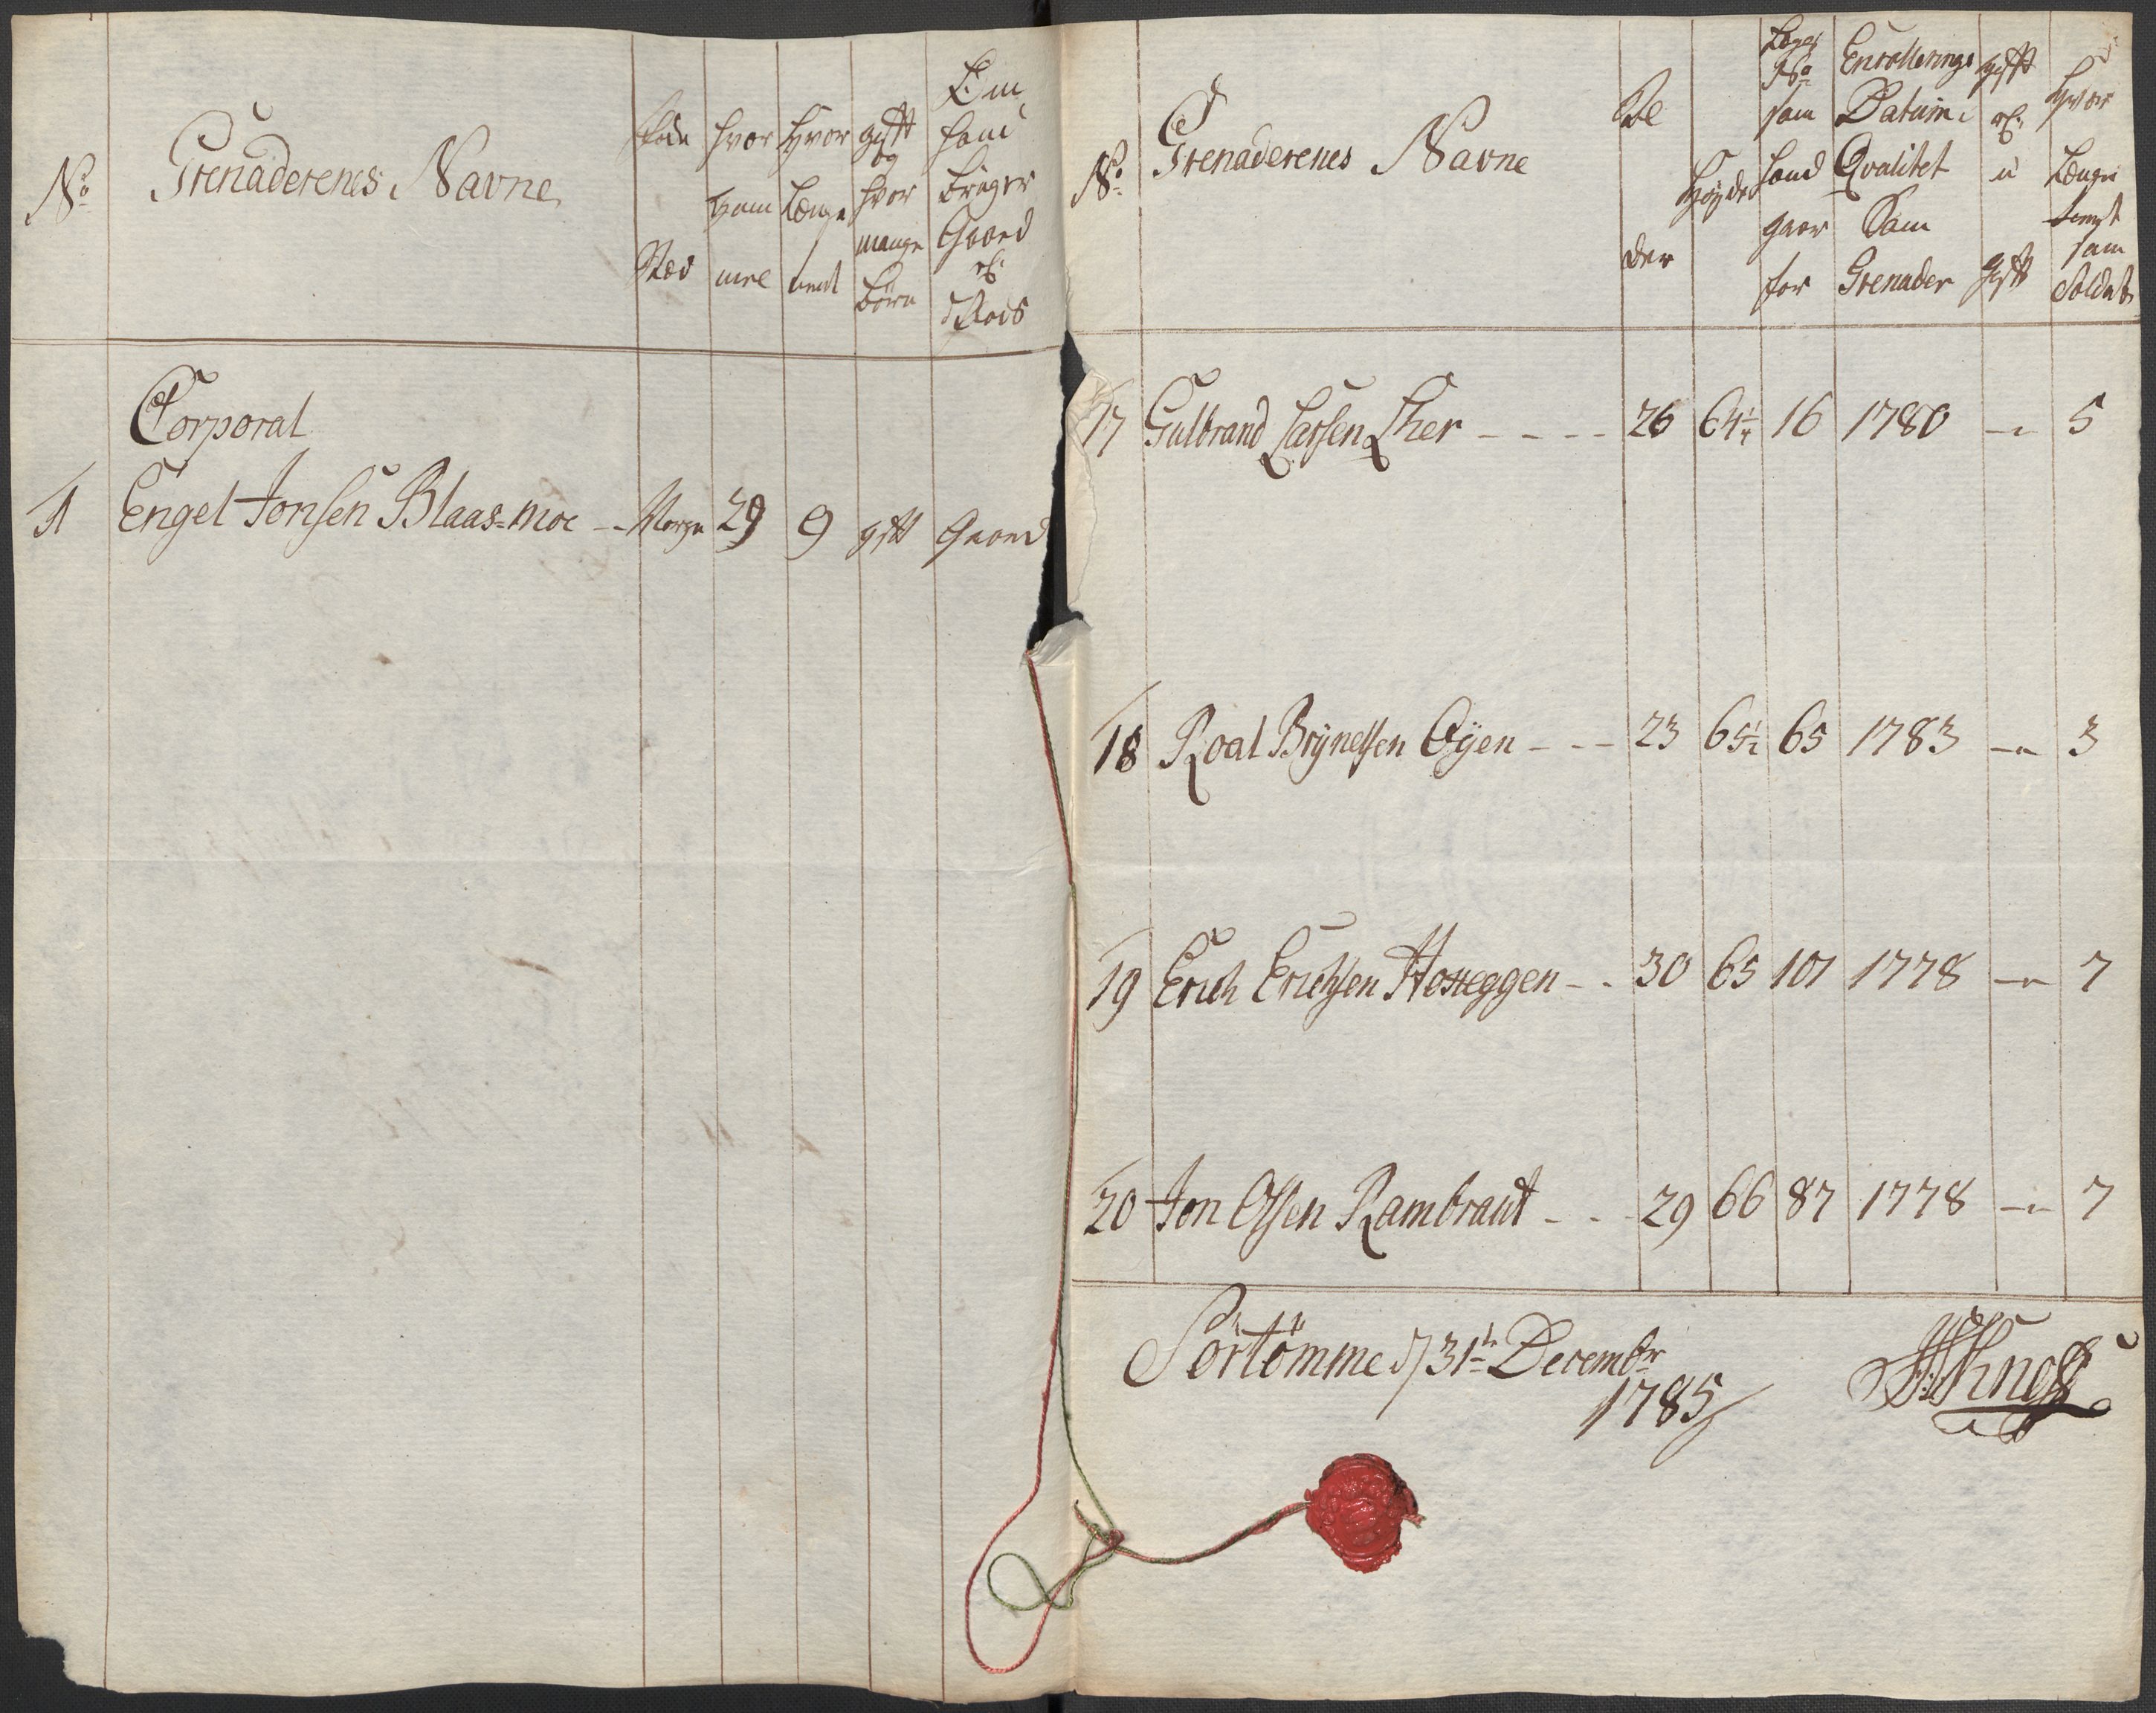 No
Grenaderenes Navne
føde
Stæd
hvor
gam
mel
hvor
Længe
tient
gift
og
hvor
mange
børn
Om
hand
bruger
Gaard
el:
Plads
Corporal
1 Engel Jonsen Blaas-moe -- Norge 29 9 gift Gaard
No
Grenaderenes Navne
Al
der
Høyde
Læges
No
som
hand
gaar
for
Enrollerings
Datum i
Qvalitet
Som
Grenader
gift
el:
u
gift
Hvor
Længe
tient
som
Soldat
17 Gulbrand Larsen Lher - - - - 26 64¼ 16 1780 -"- 5
18 Roal Brÿnelsen Oÿen - - - 23 65½ 65 1783 -"- 3
19 Erich Erichsen Hoseggen - - 30 65 101 1778 -"- 7
20 Jon Olsen Rambraut - - - 29 66 87 1778 -"- 7
Sørtømme d 31te Decembr
1785